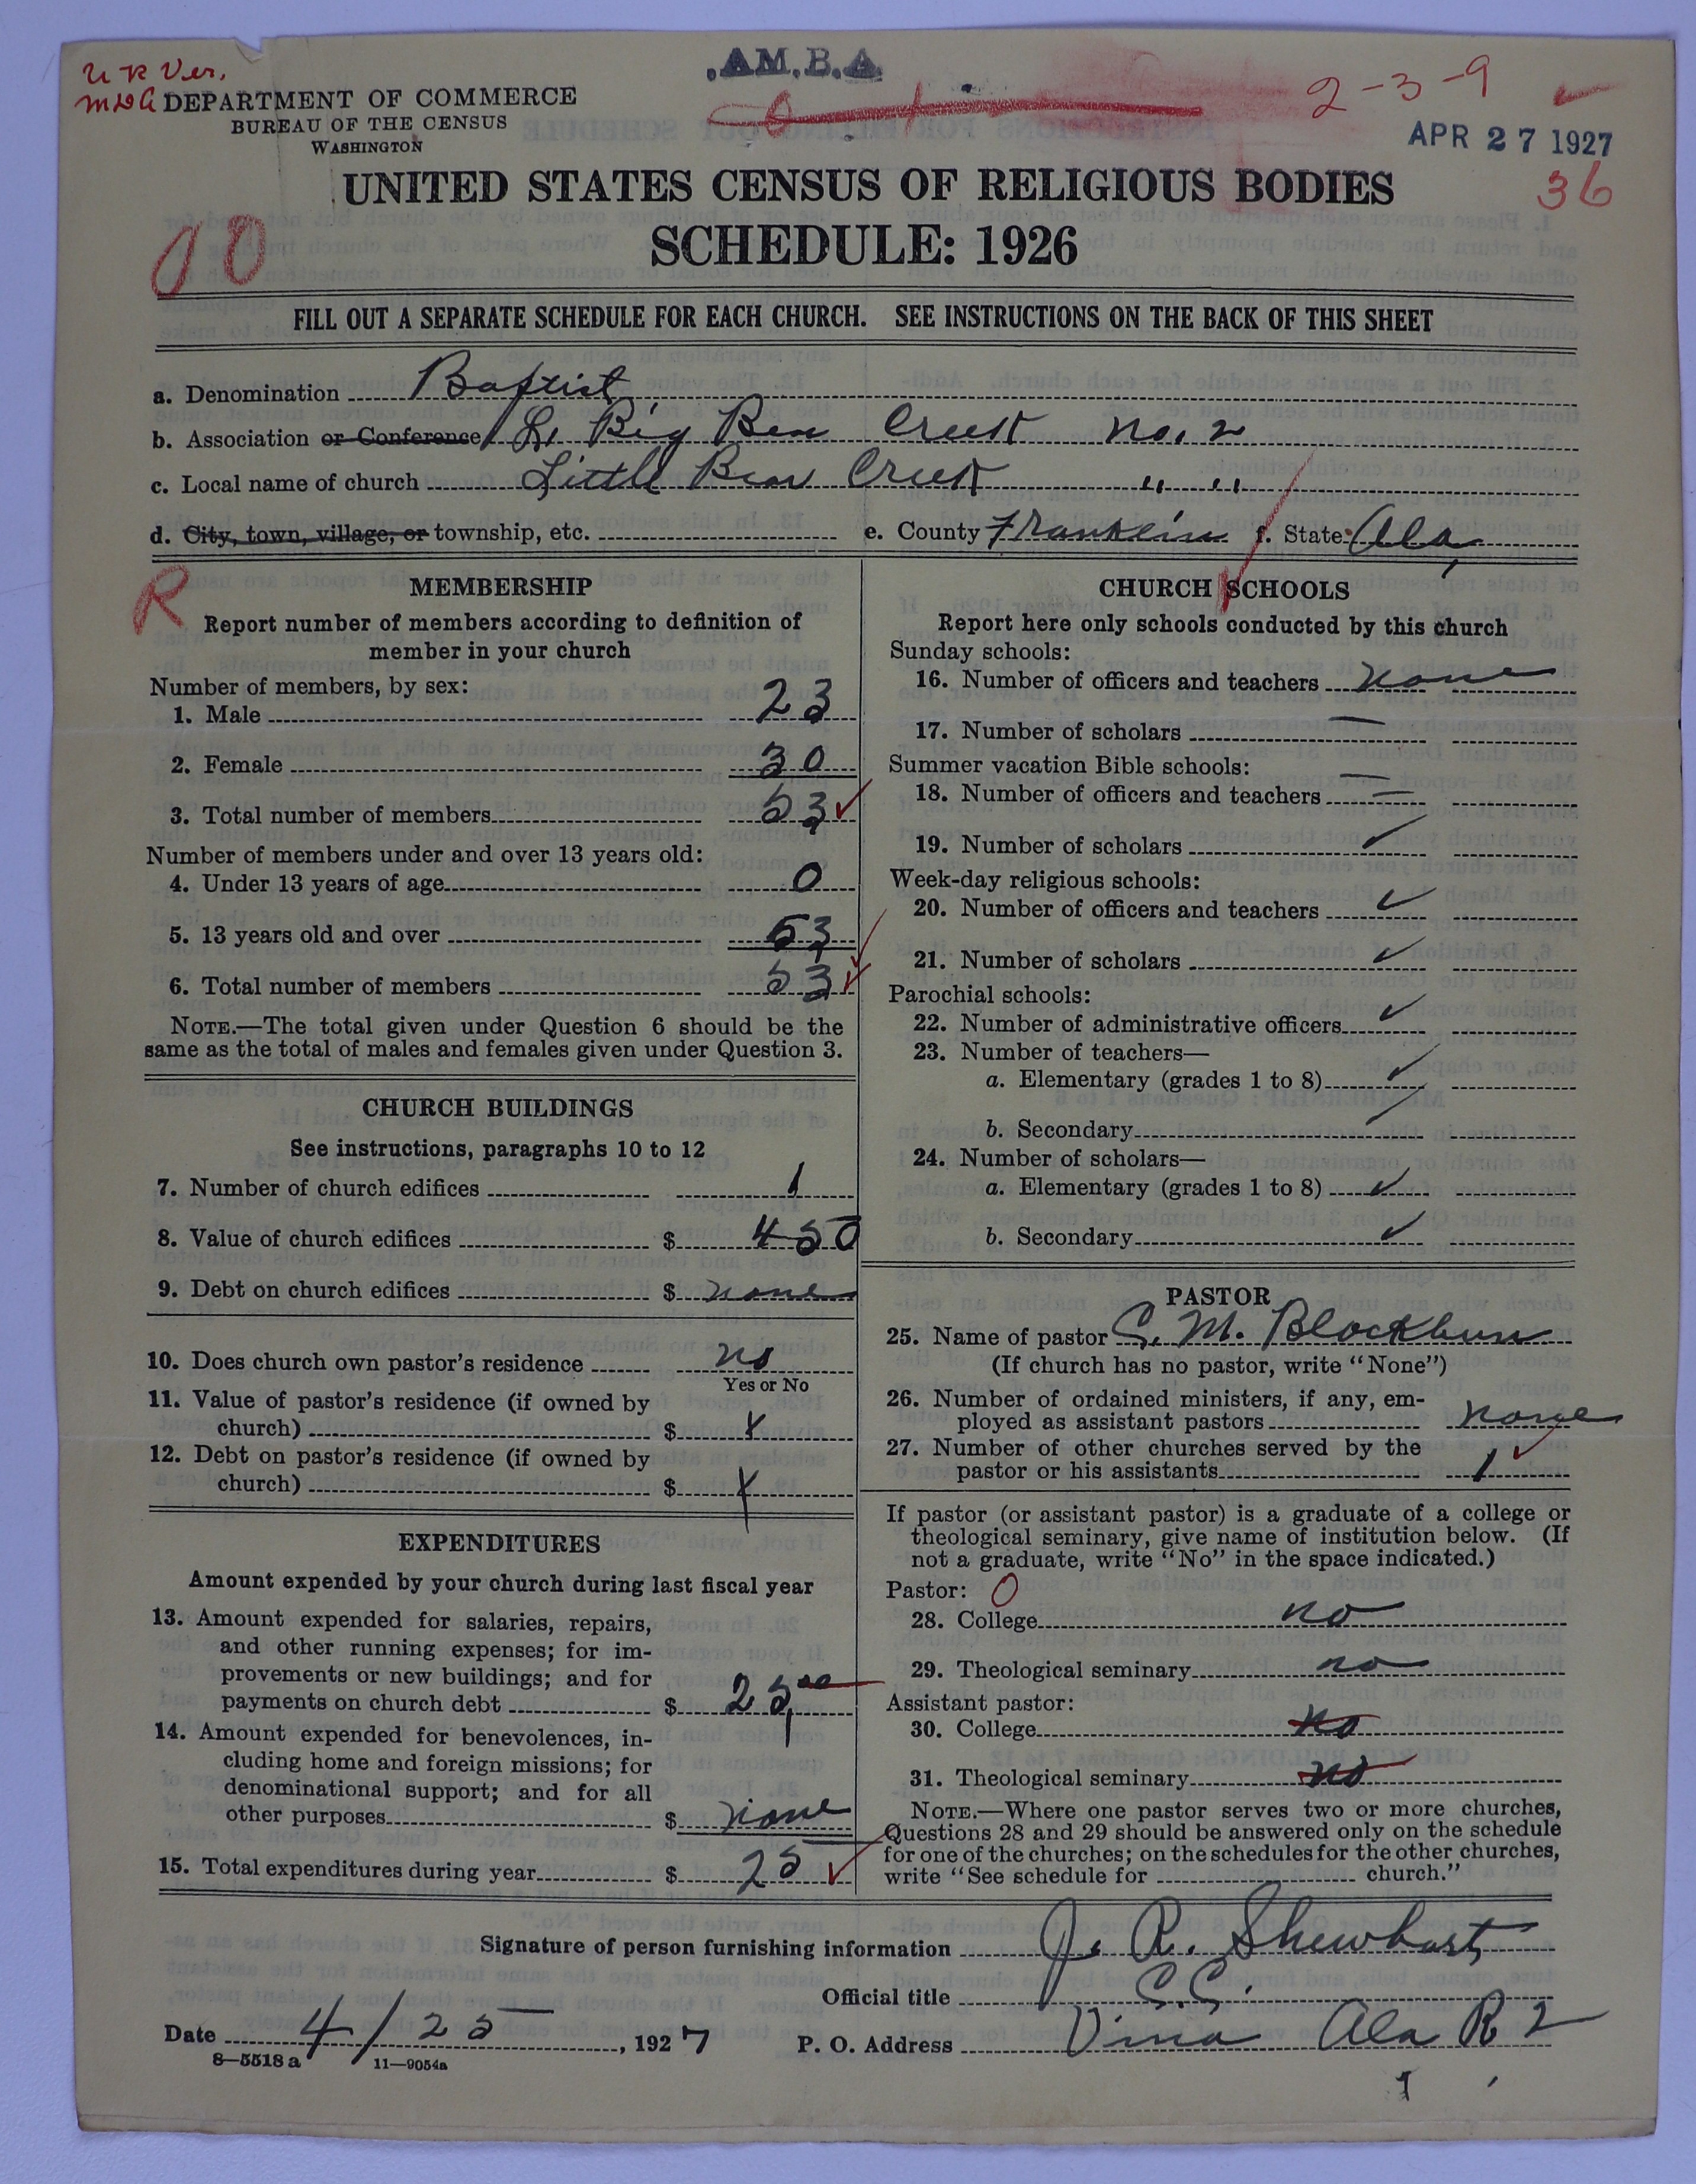 U R Ver.
.AM.B.A.
2-3-9
DEPARTMENT OF COMMERCE
BUREAU OF THE CENSUS
WASHINGTON
APR 27 1927
36
UNITED STATES CENSUS OF RELIGIOUS BODIES
SCHEDULE: 1926
FILL OUT A SEPARATE SCHEDULE FOR EACH CHURCH. SEE INSTRUCTIONS ON THE BACK OF THIS SHEET
a. Denomination Baptist
b. Association or Conference Big Bear Creek No. 2
c. Local name of church Little Bear Creek " "
d. City, town, village, or township, etc. e. County Franklin f. State Ala
R
MEMBERSHIP
Report number of members according to definition of
member in your church
Number of members, by sex:
1. Male 23
2. Female 30
3. Total number of members 53
Number of members under and over 13 years old:
4. Under 13 years of age 0
5. 13 years old and over 53
6. Total number of members 53
NOTE.—The total given under Question 6 should be the
same as the total of males and females given under Question 3.
CHURCH BUILDINGS
See instructions, paragraphs 10 to 12
7. Number of church edifices 1
8. Value of church edifices $ 450
9. Debt on church edifices $ none
10. Does church own pastor's residence no
Yes or No
11. Value of pastor's residence (if owned by
church) $ x
12. Debt on pastor's residence (if owned by
church) $ x
EXPENDITURES
Amount expended by your church during last fiscal year
13. Amount expended for salaries, repairs,
and other running expenses; for im-
provements or new buildings; and for
payments on church debt $ 25,00
14. Amount expended for benevolences, in-
cluding home and foreign missions; for
denominational support; and for all
other purposes $ none
15. Total expenditures during year $ 25
CHURCH SCHOOLS
Report here only schools conducted by this church
Sunday schools:
16. Number of officers and teachers none
17. Number of scholars —
Summer vacation Bible schools:
18. Number of officers and teachers —
19. Number of scholars ✓
Week-day religious schools:
20. Number of officers and teachers ✓
21. Number of scholars ✓
Parochial schools:
22. Number of administrative officers ✓
23. Number of teachers—
a. Elementary (grades 1 to 8) ✓
b. Secondary ✓
24. Number of scholars—
a. Elementary (grades 1 to 8) ✓
b. Secondary ✓
PASTOR
25. Name of pastor C. M. Blackburn
(If church has no pastor, write "None")
26. Number of ordained ministers, if any, em-
ployed as assistant pastors none
27. Number of other churches served by the
pastor or his assistants 1
If pastor (or assistant pastor) is a graduate of a college or
theological seminary, give name of institution below. (If
not a graduate, write "No" in the space indicated.)
Pastor: 0
28. College no
29. Theological seminary no
Assistant pastor:
30. College no
31. Theological seminary no
NOTE.—Where one pastor serves two or more churches,
Questions 28 and 29 should be answered only on the schedule
for one of the churches; on the schedules for the other churches,
write "See schedule for church."
Signature of person furnishing information J. R. Shewbart
Official title C.C.
Date 4/25, 1927 P. O. Address Vina Ala R 2
8—5518 a 11—9054a